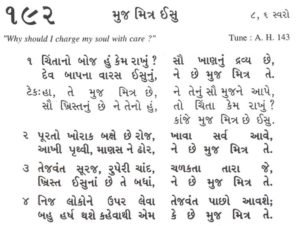 ૧૯૨ મુજ મિત્ર ઈસુ ૮, ૬ સ્વરો
"Why should I charge my soul with care ?" Tune : A. H. 143
૧ ચિંતાનો બોજ હું કેમ રાખું ? સૌ ખાણનું દ્રવ્ય છે,
દેવ બાપના વારસ ઈસુનું, ને છે મુજ મિત્ર તે.
ટેકઃ હા, તે મુજ મિત્ર છે, ને તેનું સૌ મુજને આપે,
સૌ ખ્રિસ્તનું છે ને તેનો હું, તો ચિંતા કેમ રાખું ?
કાંજે મુજ મિત્ર છે ઈસુ.
૨ પૂરતો ખોરાક બક્ષે છે રોજ, ખાવા સર્વ આવે,
આખી પૃથ્વી, માણસ ને ઢોર, ને છે મુજ મિત્ર તે.
૩ તેજવંત સૂરજ, રુપેરી ચાંદ, ચળકતા તારા જે,
ખ્રિસ્ત ઈસુનાં છે તે બધાં, ને છે મુજ મિત્ર તે.
૪ નિજ લોકોને ઉપર લેવા તેજવંત પાછો આવશે;
બહુ હર્ષ થશે કહેવાથી એમ કે છે મુજ મિત્ર તે.